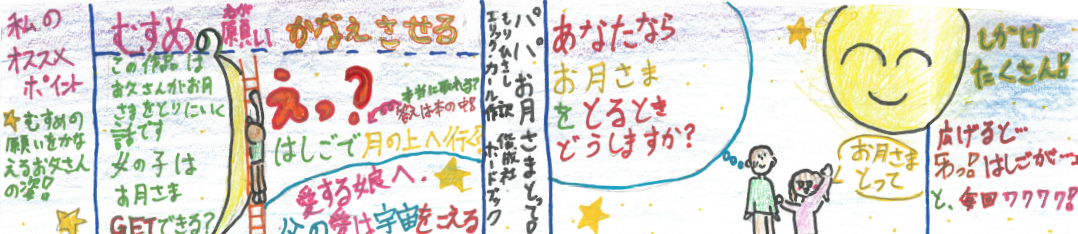 私の
オススメ
ポイント
むすめの
願いをかな
えるお父さん
の姿!
むすめの願いかなえさせる
この作品は
お父さんがお月
さまをとりにいく
話です
女の子は
お月さま
GETできる?
えっ?
本当に取れる?
答えは本の中!
はしごで月の上へ行く!
愛する娘へ.
父の愛は宇宙をこえる
パパ、お月さまとって!
もりひさし 訳 偕成社
エリック・カール作 ボードブック
あなたなら
お月さま
をとるとき
どうしますか?
お月さま
とって
しかけ
たくさん!
広げると…
わっ!はしごが…
と、毎回ワクワク!